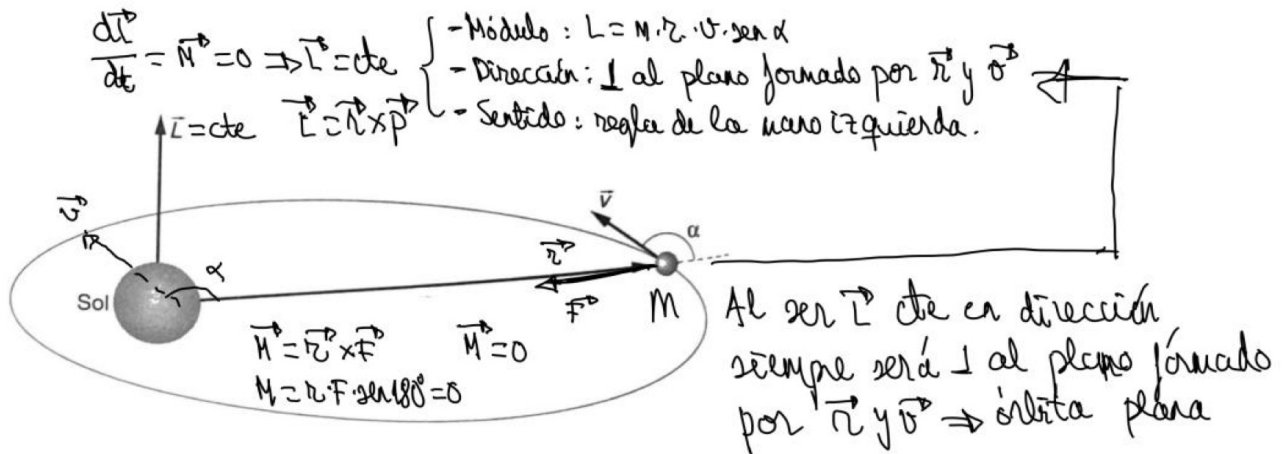 dL⃗/dt = M⃗ = 0 ⇒ L⃗ = cte
- Módulo: L = m·r·v·sen α
- Dirección: ⊥ al plano formado por r⃗ y v⃗
- Sentido: regla de la mano izquierda.
L⃗ = cte
L⃗ = r⃗ x p⃗
v⃗
α
Sol
r⃗
F⃗
v⃗
α
M
M⃗ = r⃗ x F⃗
M⃗ = 0
M = r·F·sen 180° = 0
Al ser L⃗ cte en dirección
siempre será ⊥ al plano formado
por r⃗ y v⃗ ⇒ órbita plana